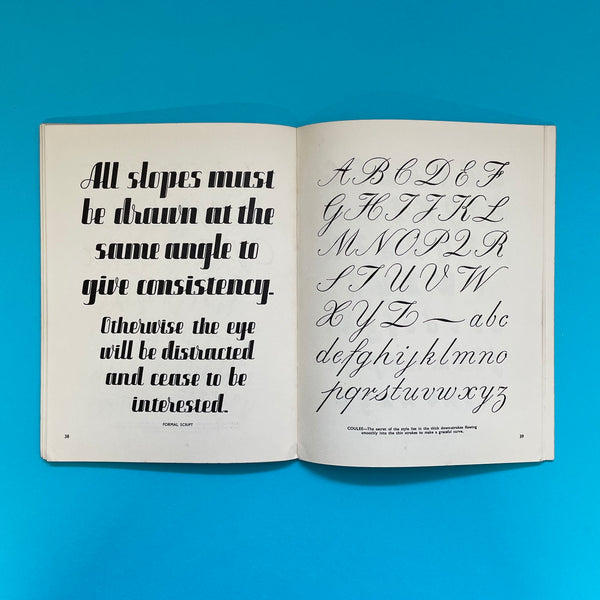 All slopes must
be drawn at the
same angle to
give consistency.
Otherwise the eye
will be distracted
and cease to be
interested.
FORMAL SCRIPT
38
A B C D E F
G H I J K L
M N O P Q R
S T U V W
X Y Z — abc
defghijklmno
pqrstuvwxyz
COULEE—The secret of the style lies in the thick downstrokes flowing
smoothly into the thin strokes to make a graceful curve.
39